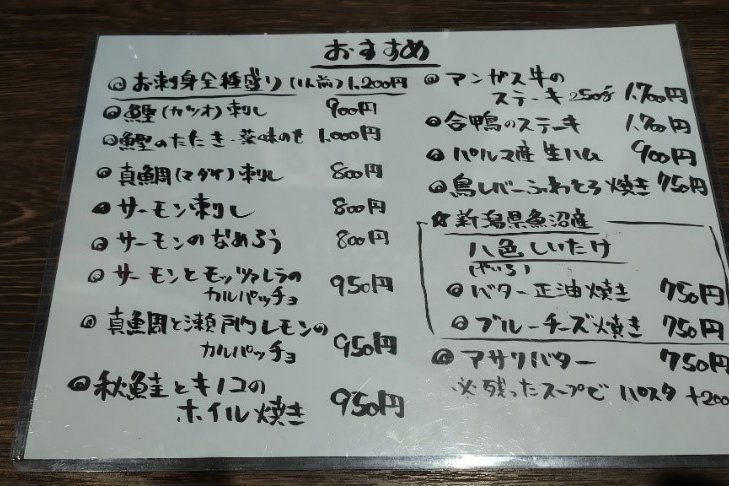 おすすめ
◎お刺身全種盛り(1人前)1,200円
◎鰹(カツオ)刺し 900円
◎鰹のたたき・薬味のせ 1,000円
◎真鯛(マダイ)刺し 800円
◎サーモン刺し 800円
◎サーモンのなめろう 800円
◎サーモンとモッツァレラの
カルパッチョ 950円
◎真鯛と瀬戸内レモンの
カルパッチョ 950円
◎秋鮭とキノコの
ホイル焼き 950円
◎アンガス牛の
ステーキ250g 1,700円
◎合鴨のステーキ 1,700円
◎パルマ産生ハム 900円
◎鳥レバーふわとろ焼き 750円
☆新潟県魚沼産
八色しいたけ
(やいろ)
◎バター正油焼き 750円
◎ブルーチーズ焼き 750円
◎アサリバター 750円
※残ったスープで パスタ +200